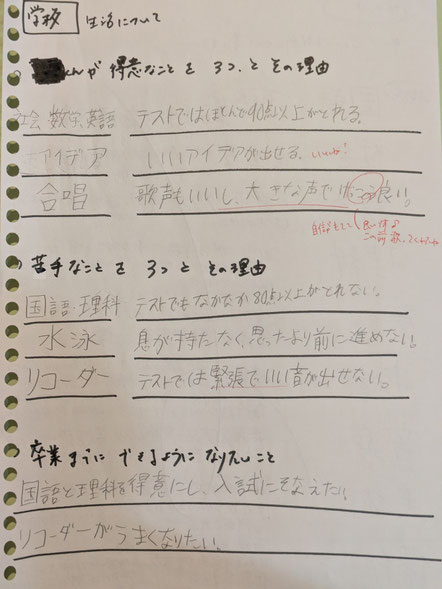 学校 生活について
くんが 得意なことを 3つ、と その理由
社会、数学、英語 テストではほとんど90点以上がとれる。
アイデア いいアイデアが出せる。 いいね!
合唱 歌声もいいし、大きな声で 良い。
自信もって
苦手なことを 3つと その理由
国語・理科 テストでもなかなか80点以上がとれない。
水泳 息が持たなく、思ったより前に進めない。
リコーダー テストでは緊張でいい音が出せない。
卒業までに できるように なりたいこと
国語と理科を得意にし、入試にそなえたい。
リコーダーがうまくなりたい。